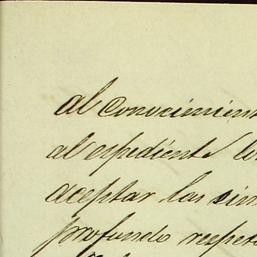 al conocimient
al espediente
aceptar las sin
profundo respet